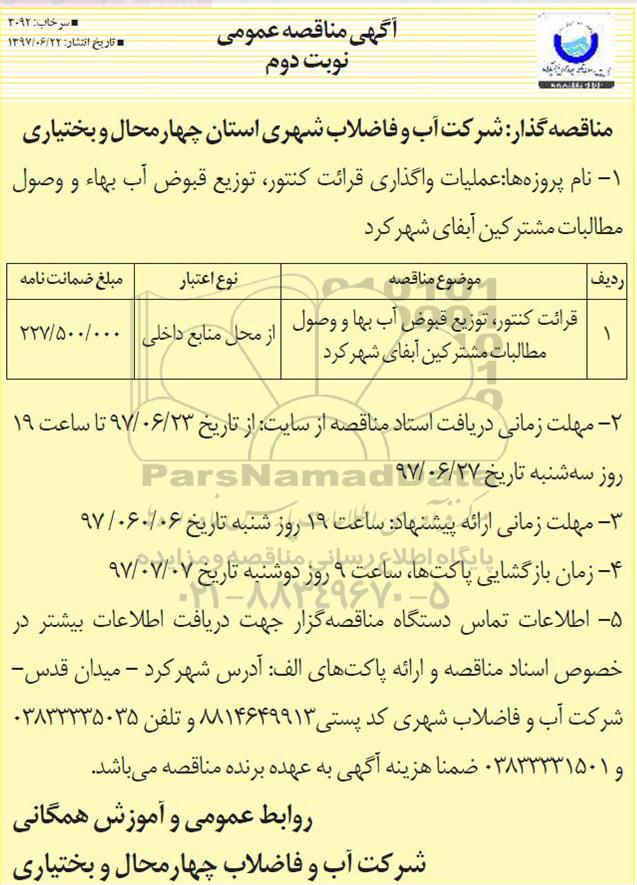 آگهی مناقصه عمومی
نوبت دوم
▪ سرخاب: ۳۰۹۲
▪ تاریخ انتشار: ۱۳۹۷/۰۶/۲۲
مناقصه گذار: شرکت آب و فاضلاب شهری استان چهارمحال و بختیاری
۱- نام پروزه‌ها:عملیات واگذاری قرائت کنتور، توزیع قبوض آب بهاء و وصول
مطالبات مشترکین آبفای شهرکرد
ردیف موضوع مناقصه نوع اعتبار مبلغ ضمانت نامه
۱ قرائت کنتور، توزیع قبوض آب بها و وصول مطالبات مشترکین آبفای شهرکرد از محل منابع داخلی ۲۲۷/۵۰۰/۰۰۰
۲- مهلت زمانی دریافت اسناد مناقصه از سایت: از تاریخ ۹۷/۰۶/۲۳ تا ساعت ۱۹
روز سه‌شنبه تاریخ ۹۷/۰۶/۲۷
ParsNamadData
۳- مهلت زمانی ارائه پیشنهاد: ساعت ۱۹ روز شنبه تاریخ ۹۷/۰۶۰/۰۶
پایگاه اطلاع رسانی مناقصه و مزایده
۴- زمان بازگشایی پاکت‌ها، ساعت ۹ روز دوشنبه تاریخ ۹۷/۰۷/۰۷
۰۲۱-۸۸۳۴۹۶۷۰-۵
۵- اطلاعات تماس دستگاه مناقصه‌گزار جهت دریافت اطلاعات بیشتر در
خصوص اسناد مناقصه و ارائه پاکت‌های الف: آدرس شهرکرد - میدان قدس-
شرکت آب و فاضلاب شهری کد پستی۸۸۱۴۶۴۹۹۱۳ و تلفن ۰۳۸۳۳۳۳۵۰۳۵
و ۰۳۸۳۳۳۳۱۵۰۱ ضمنا هزینه آگهی به عهده برنده مناقصه می‌باشد.
روابط عمومی و آموزش همگانی
شرکت آب و فاضلاب چهارمحال و بختیاری